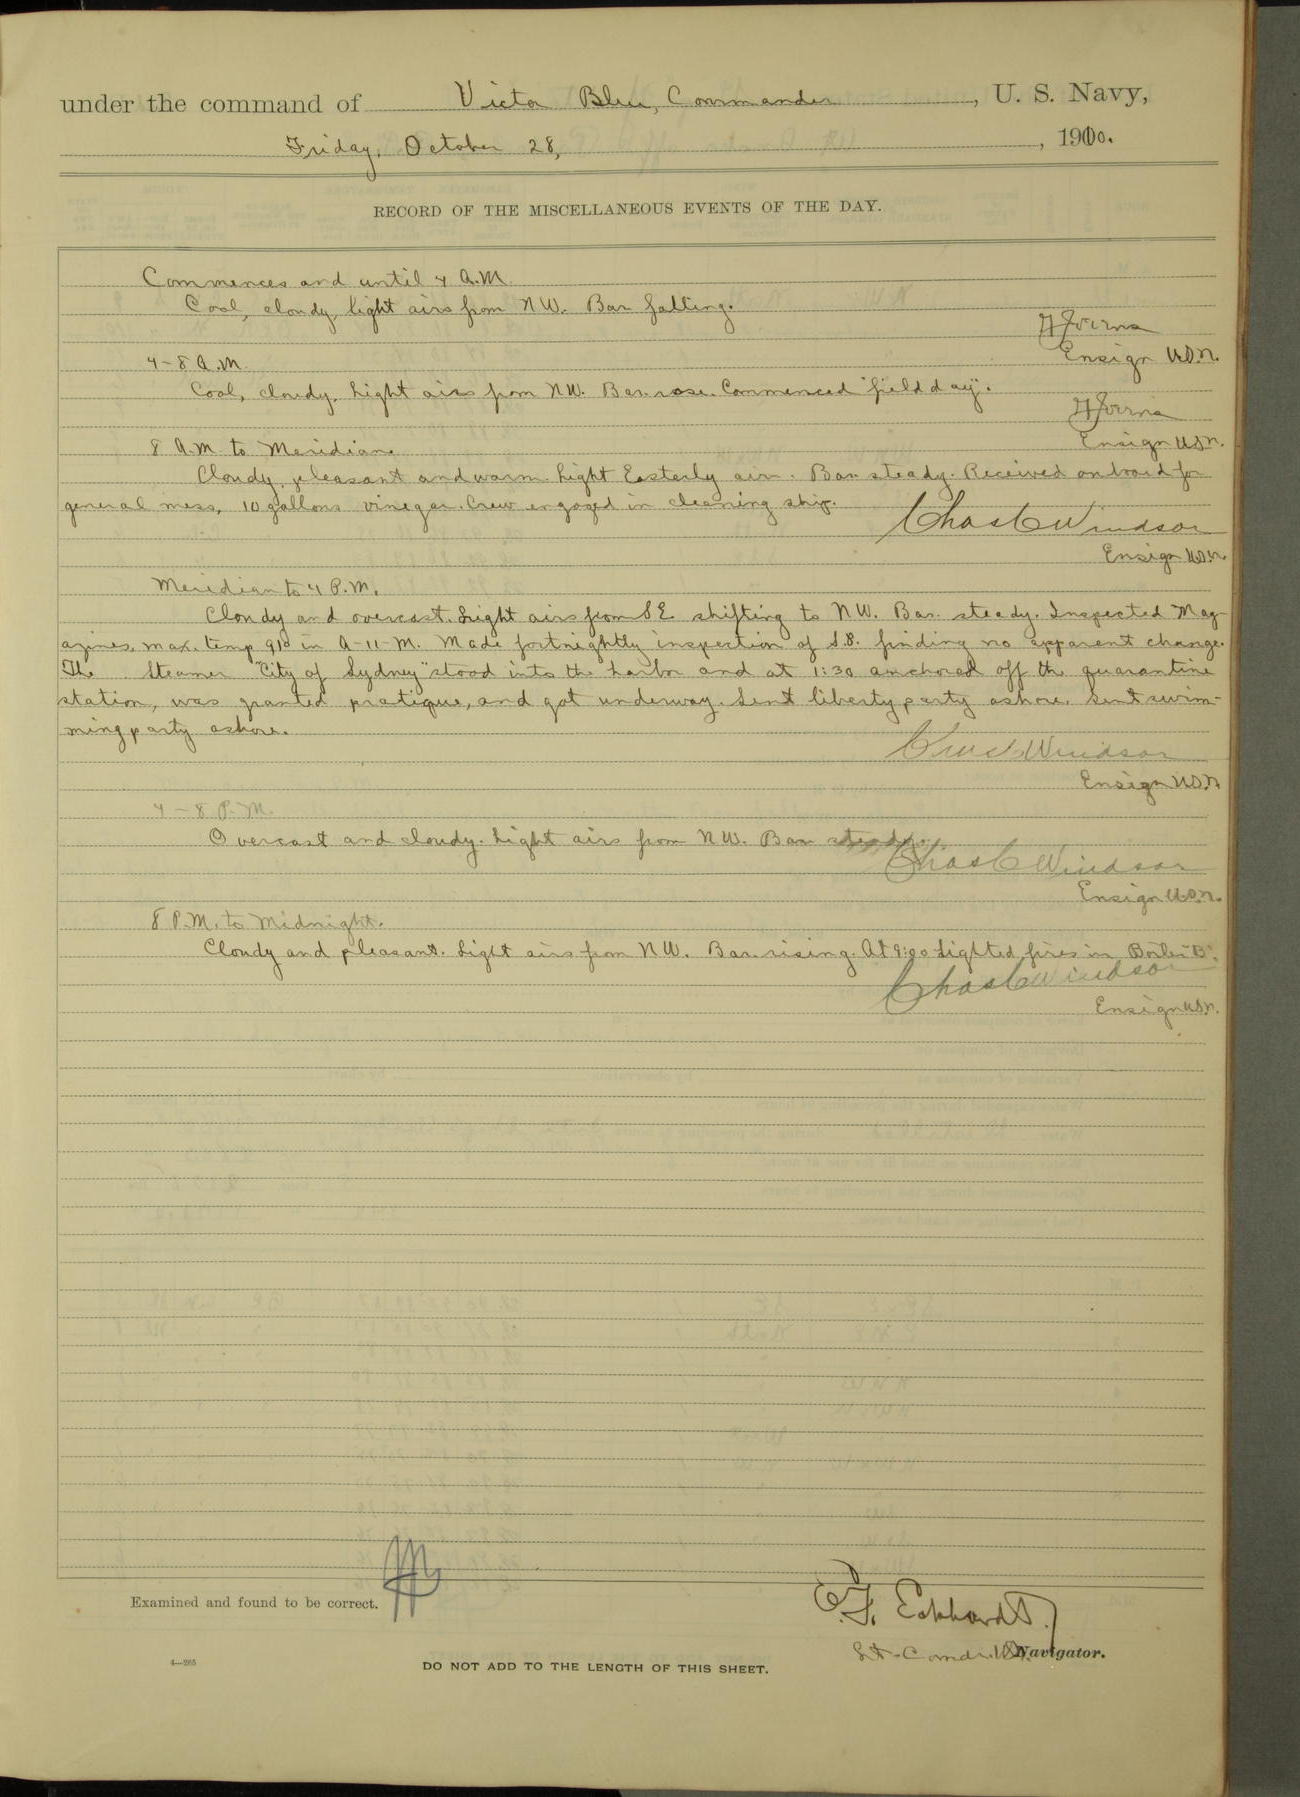 under the command of Victor Blue, Commander, U. S. Navy,
Friday, October 28, 1910.
RECORD OF THE MISCELLANEOUS EVENTS OF THE DAY.
Commences and until 4 A.M.
Cool, cloudy, light airs from NW. Bar falling.
Ensign U.S.N.
4-8 A.M.
Cool, cloudy. Light airs from NW. Bar. rose. Commenced "field day".
Ensign U.S.N.
8 A.M. to Meridian.
Cloudy, pleasant and warm. Light Easterly air. Bar. steady. Received on board for
general mess, 10 gallons vinegar. Crew engaged in cleaning ship.
Chas C Windsor
Ensign U.S.N.
Meridian to 4 P.M.
Cloudy and overcast. Light airs from SE shifting to NW. Bar. steady. Inspected Mag-
azines, max. temp. 91° in A-11-M. Made fortnightly inspection of S.B. finding no apparent change.
The Steamer "City of Sydney" stood into the harbor and at 1:30 anchored off the quarantine
station, was granted pratique, and got underway. Sent liberty party ashore. Sent swim-
ming party ashore.
Chas C Windsor
Ensign U.S.N.
4-8 P.M.
Overcast and cloudy. Light airs from NW. Bar steady.
Chas C Windsor
Ensign U.S.N.
8 P.M. to Midnight.
Cloudy and pleasant. Light airs from NW. Bar. rising. At 9:00 lighted fires in Boiler "B".
Chas C Windsor
Ensign U.S.N.
Examined and found to be correct.
E. F. Eckhardt
Lt-Comdr. U.S.N. Navigator.
4-265
DO NOT ADD TO THE LENGTH OF THIS SHEET.